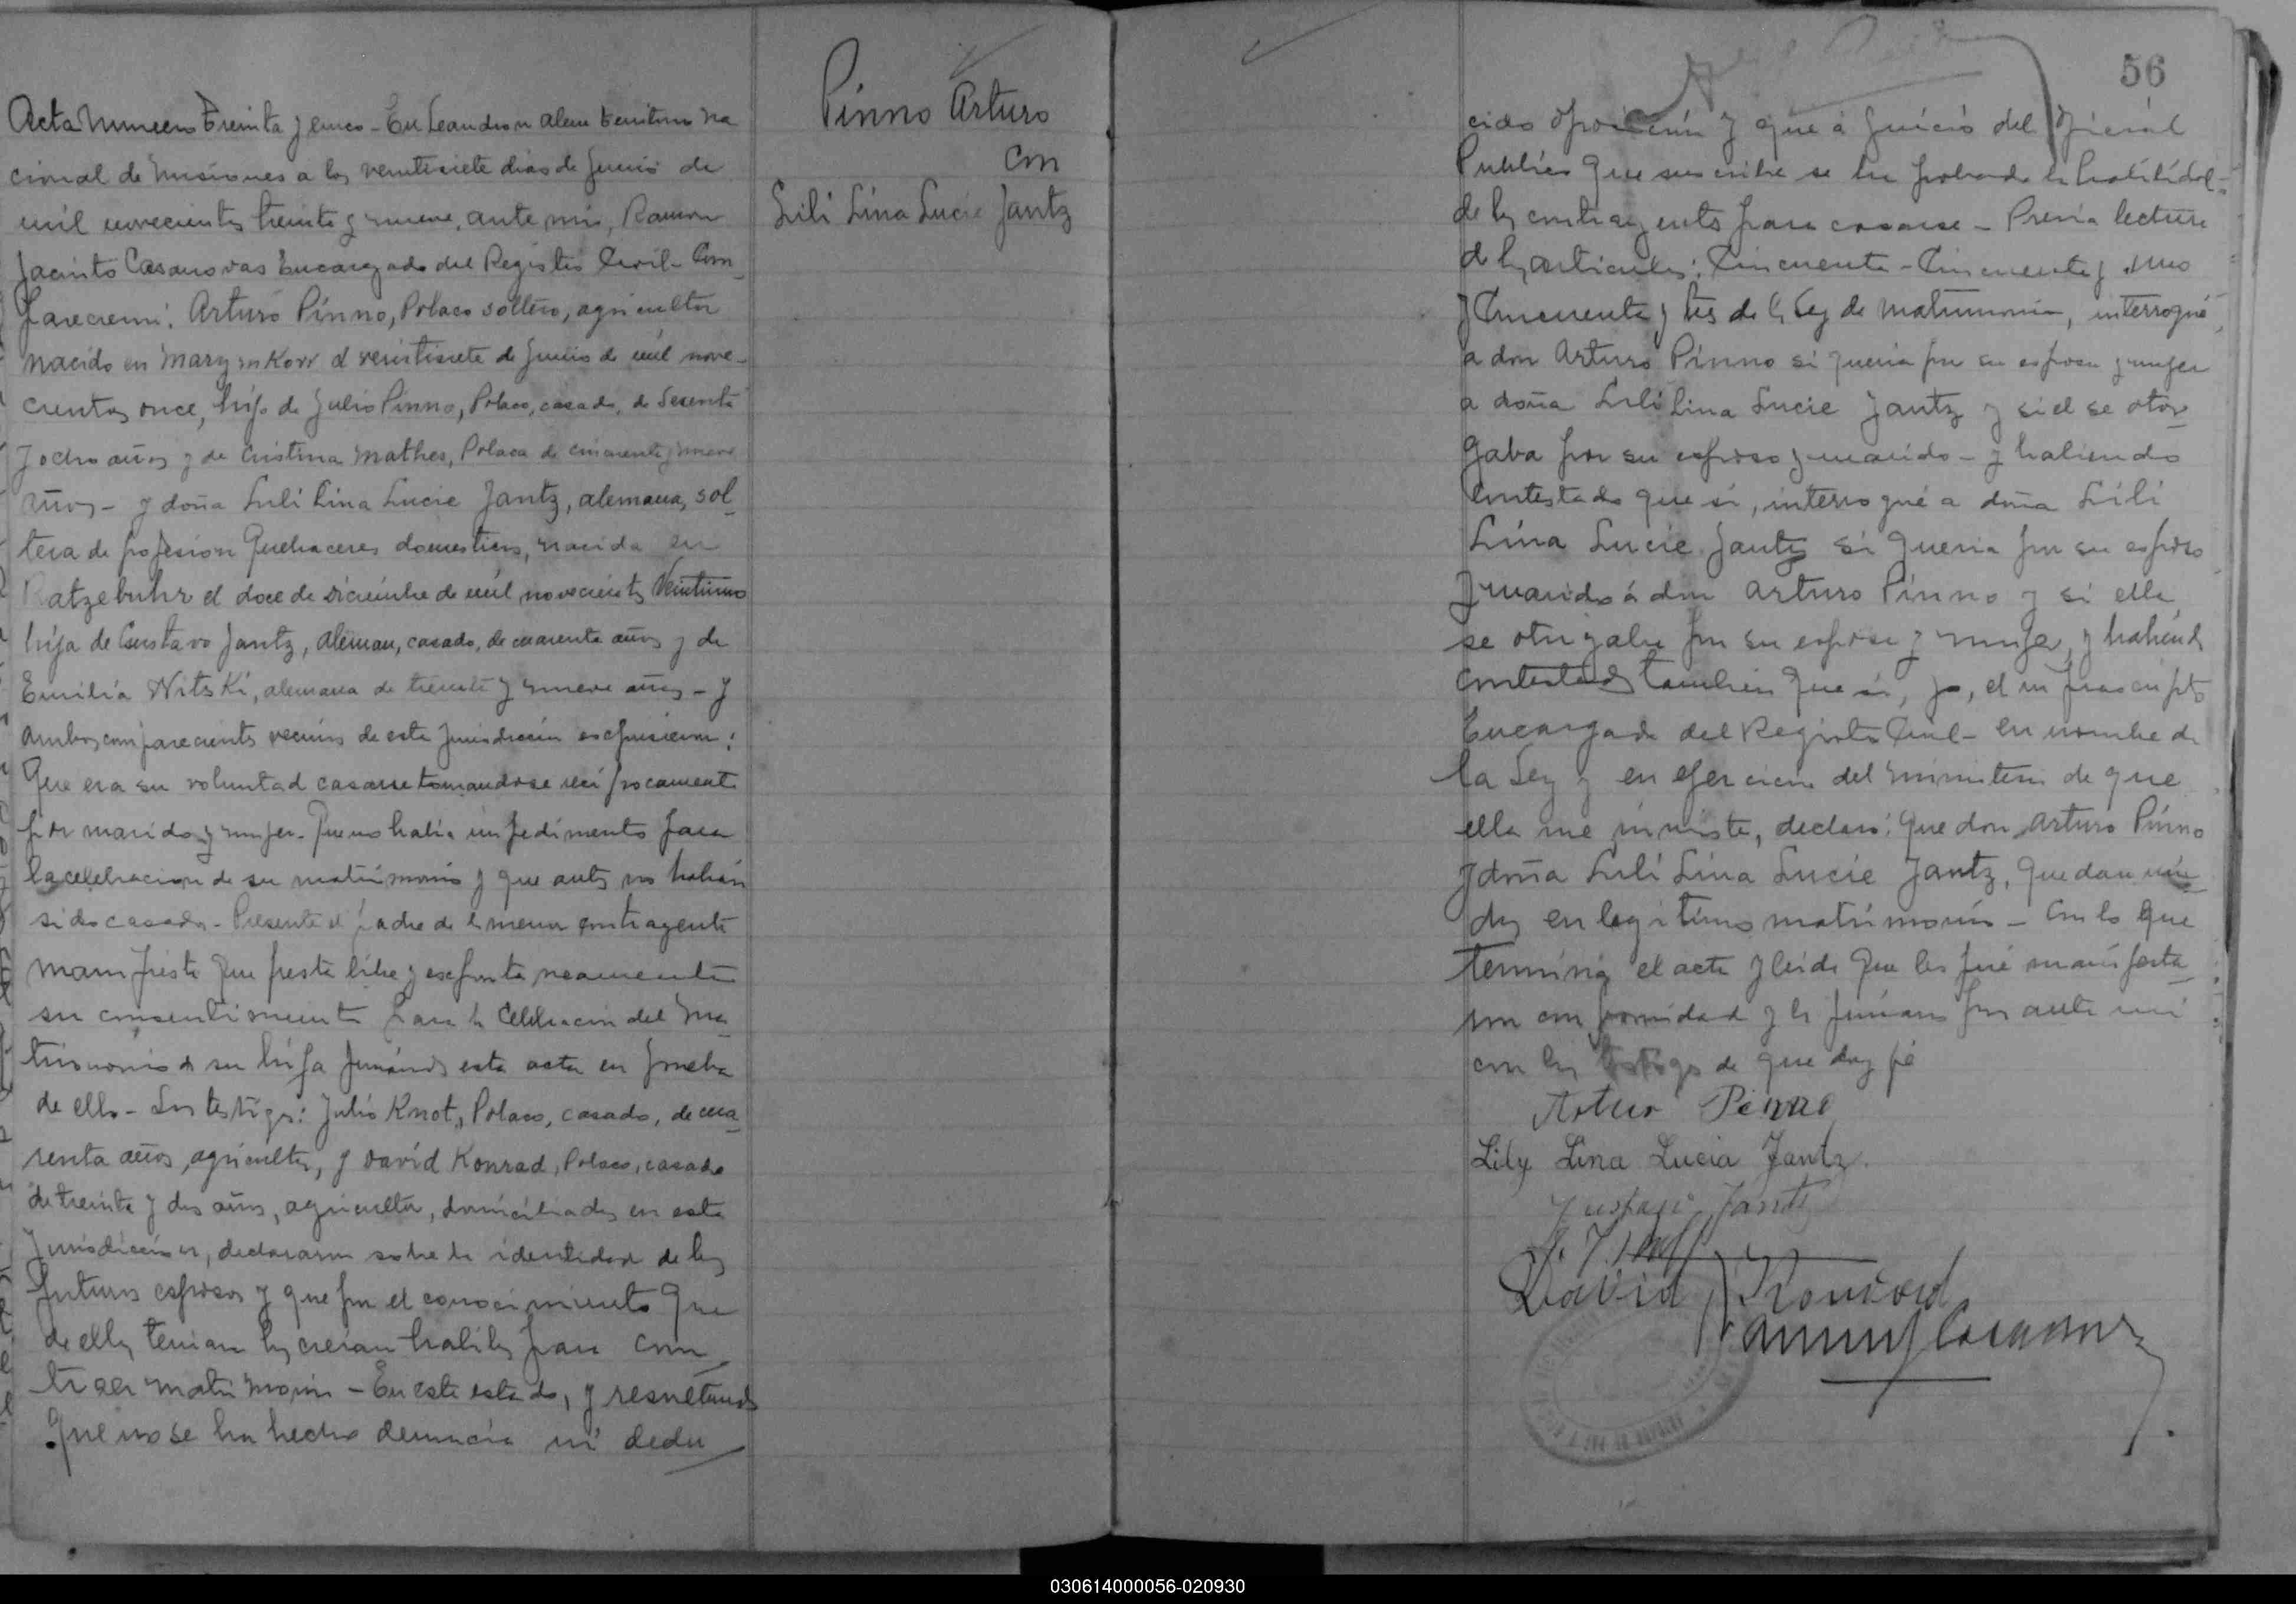 Acta Numero treinta y cinco - En Leandro n alem territorio na
cional de Misiones a los veintisiete dias de Junio de
mil novecientos treinta y nueve, ante mi, Ramon
Jacinto Casanovas Encargado del Registro Civil - Com
parecieron: Arturo Pinno, Polaco soltero, agricultor
nacido en el veintisiete de Junio de mil nove-
cientos once, hijo de Julio Pinno, Polaco, casado, de Sesenta
y ocho años y de Cristina Mathes, Polaca de cincuenta y nueve
años - y doña Lili Lina Lucie Jantz, alemana, sol
tera de profesion Quehaceres domesticos, nacida en
Ratzebuhr el doce de Diciembre de mil novecientos Veintiuno
hija de Gustavo Jantz, Aleman, casado, de cuarenta años y de
Emilia Nitski, alemana de treinta y nueve años - y
ambos comparecientes vecinos de esta Jurisdiccion expusieron:
Que era su voluntad casarse tomandose reciprocamente
por marido y mujer - Que no habia impedimento para
la celebracion de su matrimonio y que antes no habian
sido casados - Presente el padre de la menor contrayente
manifiesta que presta libre y espontaneamente
su consentimiento para la Celebracion del Ma
trimonio de su hija firmando esta acta en prueba
de ello - Los testigos: Julio Knot, Polaco, casado, de cua
renta años, agricultor, y David Konrad, Polaco, casado
de treinta y dos años, agricultor, domiciliados en esta
Jurisdiccion, declararon sobre la identidad de los
futuros esposos y que por el conocimiento que
de ellos tenian los creian habiles para con
traer matrimonio - En este estado, y resultando
que no se ha hecho denuncia ni dedu
Pinno Arturo
con
Lili Lina Lucie Jantz
56
cido oposicion y que á Juicio del Oficial
Publico que suscribe se ha probado la habilidad
de los contrayentes para casarse - Previa lectura
de los articulos: Cincuenta - Cincuenta y uno
y Cincuenta y tres de la Ley de Matrimonio, interrogué
a don Arturo Pinno si queria por su esposa y mujer
a doña Lili Lina Lucie Jantz y si el se otor
gaba por su esposo y marido - y habiendo
contestado que sí, interrogué a doña Lili
Lina Lucie Jantz si queria por su esposo
y marido á don Arturo Pinno y si ella
se otorgaba por su esposa y mujer, y habiendo
contestado tambien que sí, yo, el infrascripto
Encargado del Registro Civil - en nombre de
la Ley y en ejercicio del ministerio de que
ella me inviste, declaro: Que don Arturo Pinno
y doña Lili Lina Lucie Jantz, quedan uni
dos en legitimo matrimonio - Con lo que
termina el acta y leida que les fué manifesta
ron conformidad y la firman por ante mi
con los testigos de que doy fé
Artur Pinno
Lily Lina Lucia Jantz.
Gustav Jantz
David Konrad
030614000056-020930